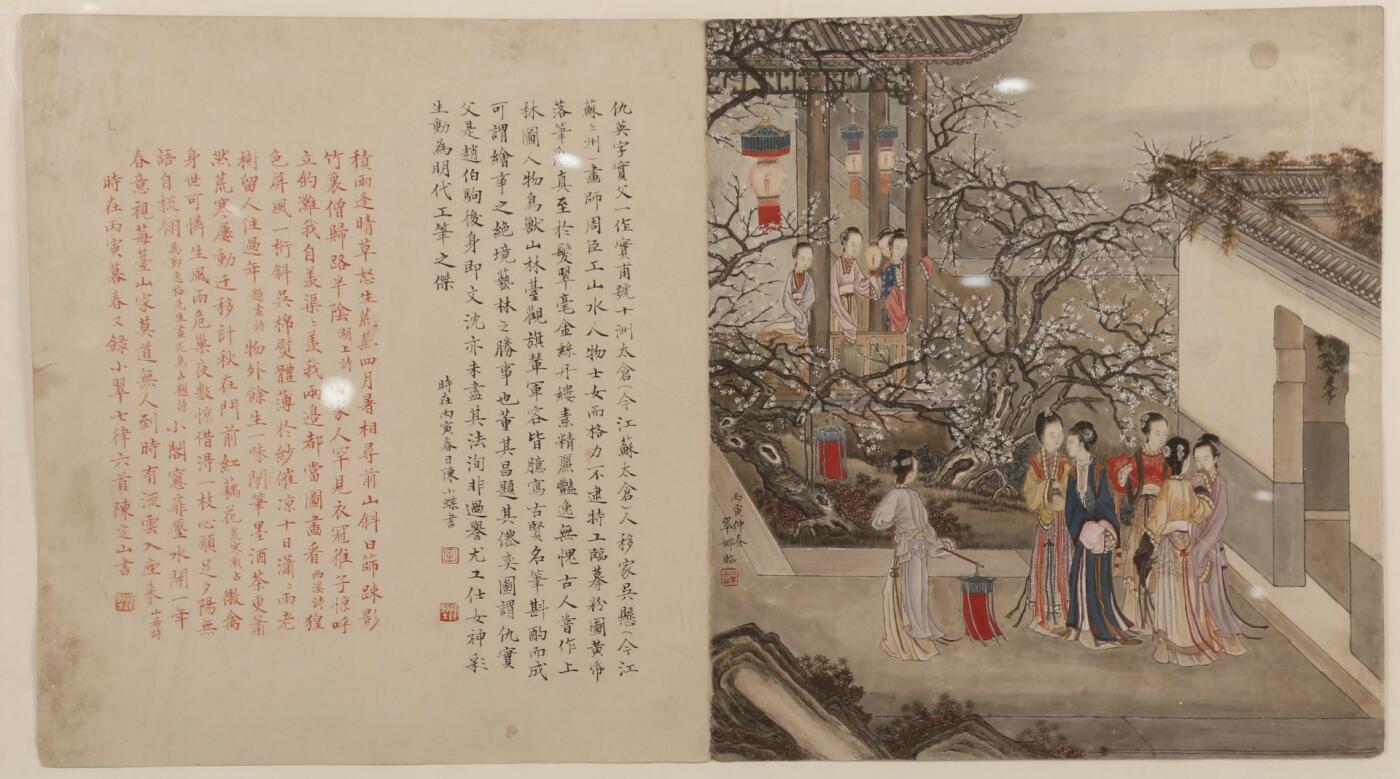 丙寅仲春
翠娜臨
仇英字實父一作實甫號十洲太倉(今江蘇太倉)人移家吳縣(今江
蘇蘇州)畫師周臣工山水人物士女而格力不逮特工臨摹粉圖黃帋
落筆真至於髮翠毫金絲丹縷素精麗豔逸無愧古人嘗作上
林圖人物鳥獸山林臺觀旗輦軍容皆臆寫古賢名筆斟酌而成
可謂繪事之絕境藝林之勝事也董其昌題其僊奕圖謂仇實
父是趙伯駒後身即文沈亦未盡其法洵非過譽尤工仕女神彩
生動為明代工筆之傑
時在丙寅春日陳小蝶書
積雨逢晴草怒生薰四月暑相尋前山斜日篩踈影
竹裏僧歸路半陰湖上詩家人罕見衣冠稚子惊呼
立釣灘我自羨渠渠羨我兩邊都當圖畫看西溪詩猩
色屏風一桁斜吳棉熨體薄於紗催涼十日瀟瀟雨老
樹留人住過年題畫詩物外餘生一味閒筆墨酒茶更蕭
然荒寒屢動迁移計秋在門前紅藕花荒寒戲占微禽
身世可憐生風雨危巢夜數惊借淂一枝心願足夕陽無
語自梳翎小閣寬扉壓水開一年
春意視莓臺山家莫道無人到時有流雲入座来山居詩
時在丙寅暮春又錄小翠七律六首陳定山書